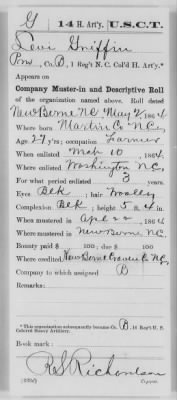 G | 14 H. Art'y. | U.S.C.T.
Levi Griffin
Pvt., Co. B, 1 Reg't N. C. Col'd H. Art'y.*
Appears on
Company Muster-in and Descriptive Roll
of the organization named above. Roll dated
New Berne N.C. May 2, 1864
Where born Martin Co N.C.
Age 27 y'rs; occupation Farmer
When enlisted Mch 10, 1864
Where enlisted Washington N.C.
For what period enlisted 3 years.
Eyes Blk; hair Woolley
Complexion Blk; height 5 ft. 4 in.
When mustered in Apl 22, 1864
Where mustered in New Berne N.C.
Bounty paid $ 100; due $ 100
Where credited New Berne Craven Co N.C.
Company to which assigned B
Remarks:
*This organization subsequently became Co. B, 14 Reg't U. S. Colored Heavy Artillery.
Book mark:
R S Richardson
Copyist.